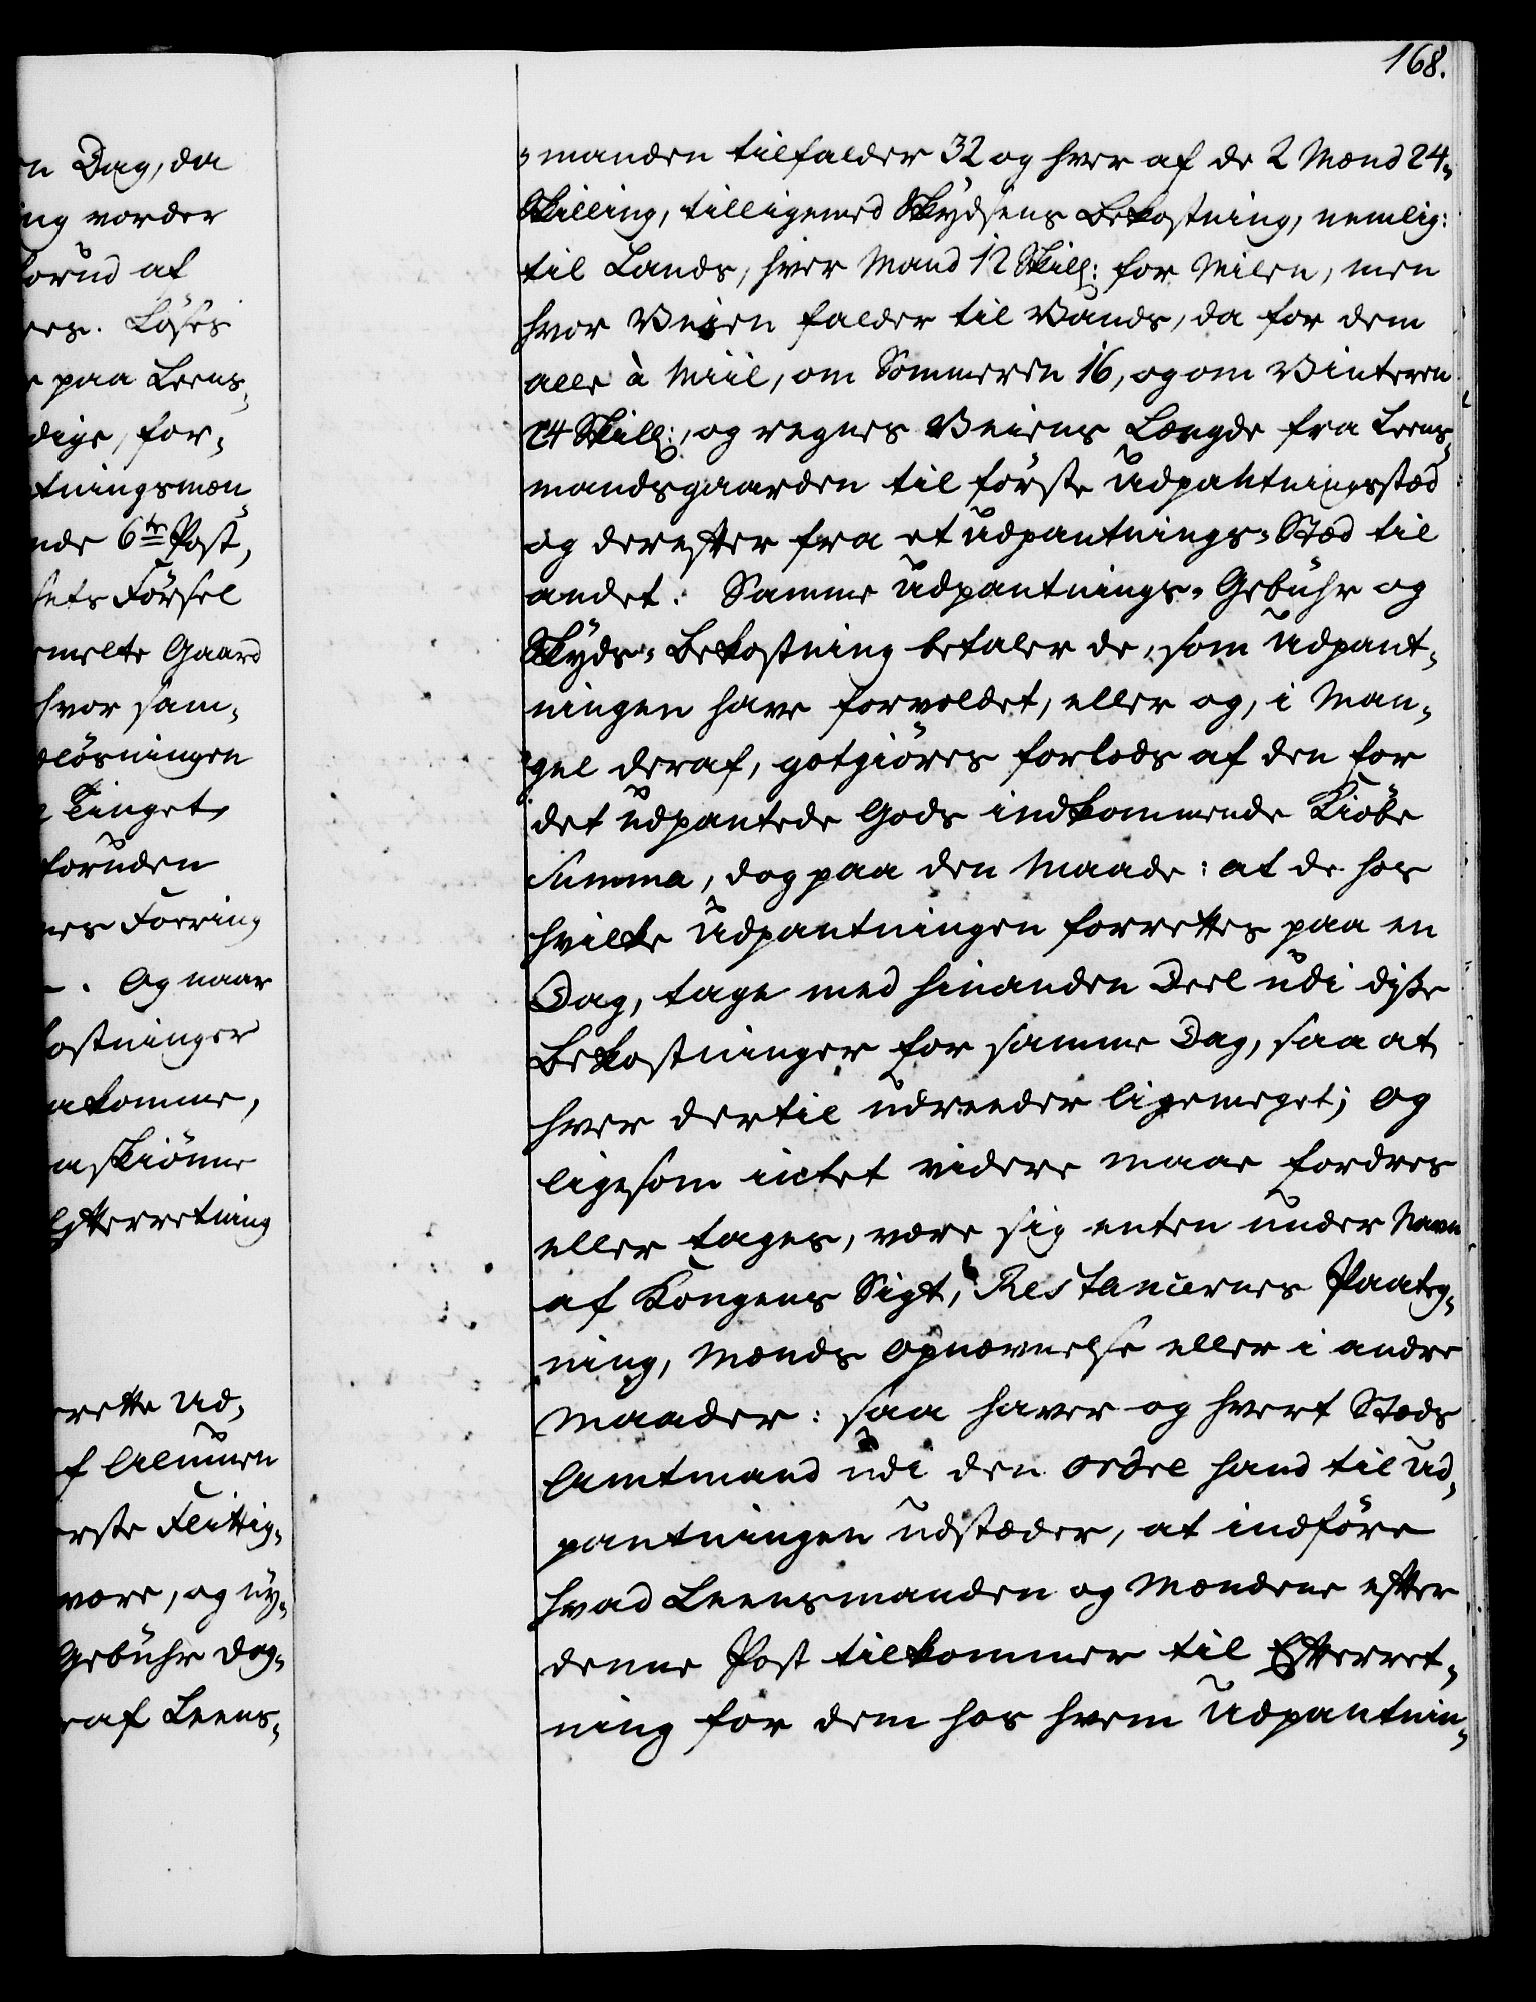 168.
n Dag, da
ing vorder
forud af
res. Løses
e paa Leens-
dige, for-
tningsmæn
nde 6te Post,
sets Førsel
melte Gaard
hvor sam-
løsningen
Tinget,
foruden
res Foering
Og naar
kostninger
akomme,
askiönne
Efterretning
rette Ud-
f Almuen
rste Flittig-
være, og ny-
Gebühr dog-
raf Leens-
-manden tilfalder 32 og hver af de 2 Mænd 24-
Skilling, tilligemed Skydsens Bekostning, nemlig:
til Lands, hver Mand 12 Skill: for Milen, men
hvor Veien falder til Vands, da for dem
alle à Miil, om Sommeren 16, og om Vinteren
24 Skill:, og regnes Veiens Længde fra Leens-
mandsgaarden til förste Udpantningsstæd
og derefter fra et Udpantnings-Stæd til
andet. Samme Udpantnings-Gebühr og
Skyds-Bekostning betaler de, som Udpant-
ningen have forvoldet, eller og, i Man-
gel deraf, gotgiöres forlods af den for
det udpantede Gods indkommende Kiöbe
Summa, dog paa den Maade: at de hos
hvilke Udpantningen forrettes paa en
Dag, tage med hinanden Deel udi disse
Bekostninger for samme Dag, saa at
hver dertil udreeder ligemeget; og
ligesom intet videre maae fordres
eller tages, være sig enten under Navn
af Kongens Sigt, Restancernes Paateg-
ning, Mænds Opnævnelse eller i andre
Maader: saa haver og hvert Stæds
Amtmand udi den ordre hand til Ud-
pantningen udstæder, at indföre
hvad Leensmanden og Mændene efter
denne Post tilkommer til Efterret-
ning for dem hos hvem Udpantnin-